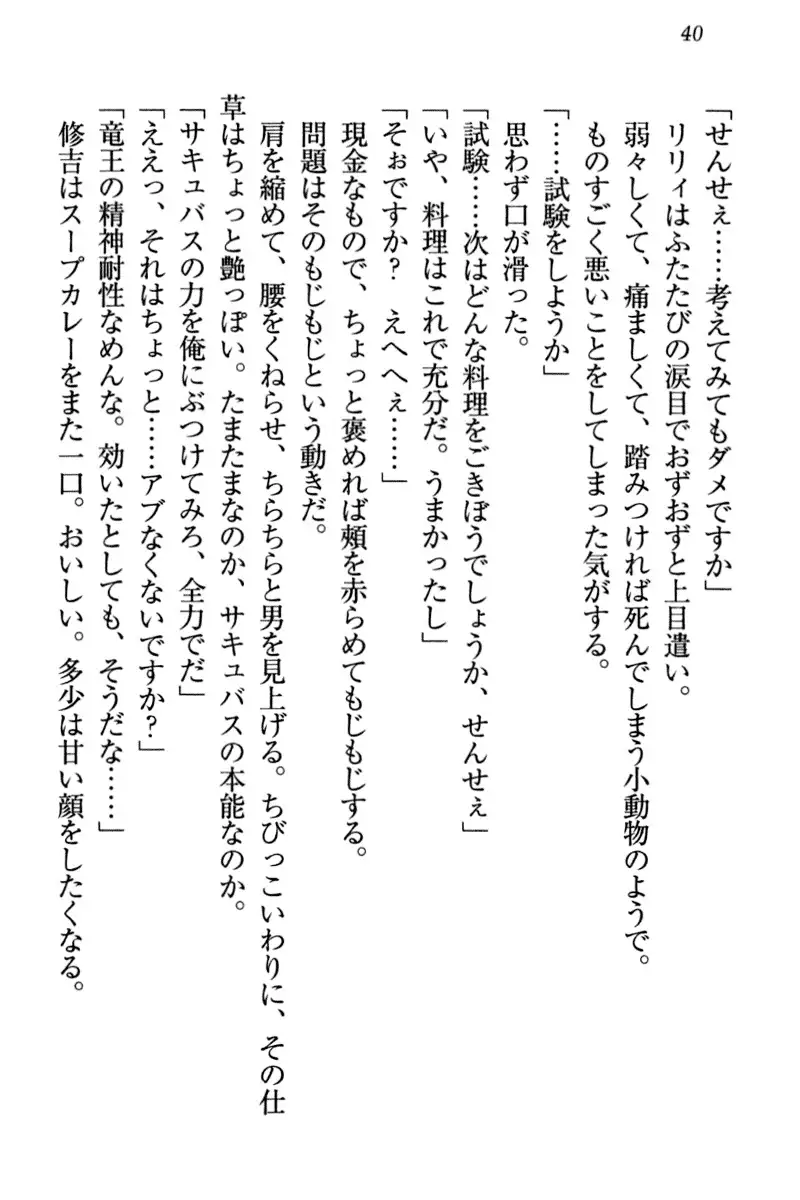 40
「せんせぇ……考えてみてもダメですか」
リリィはふたたびの涙目でおずおずと上目遣い。
弱々しくて、痛ましくて、踏みつければ死んでしまう小動物のようで。
ものすごく悪いことをしてしまった気がする。
「……試験をしようか」
思わず口が滑った。
「試験……次はどんな料理をごきぼうでしょうか、せんせぇ」
「いや、料理はこれで充分だ。うまかったし」
「そぉですか？　えへへぇ……」
現金なもので、ちょっと褒めれば頬を赤らめてもじもじする。
問題はそのもじもじという動きだ。
肩を縮めて、腰をくねらせ、ちらちらと男を見上げる。ちびっこいわりに、その仕
草はちょっと艶っぽい。たまたまなのか、サキュバスの本能なのか。
「サキュバスの力を俺にぶつけてみろ、全力でだ」
「ええっ、それはちょっと……アブなくないですか？」
「竜王の精神耐性なめんな。効いたとしても、そうだな……」
修吉はスープカレーをまた一口。おいしい。多少は甘い顔をしたくなる。